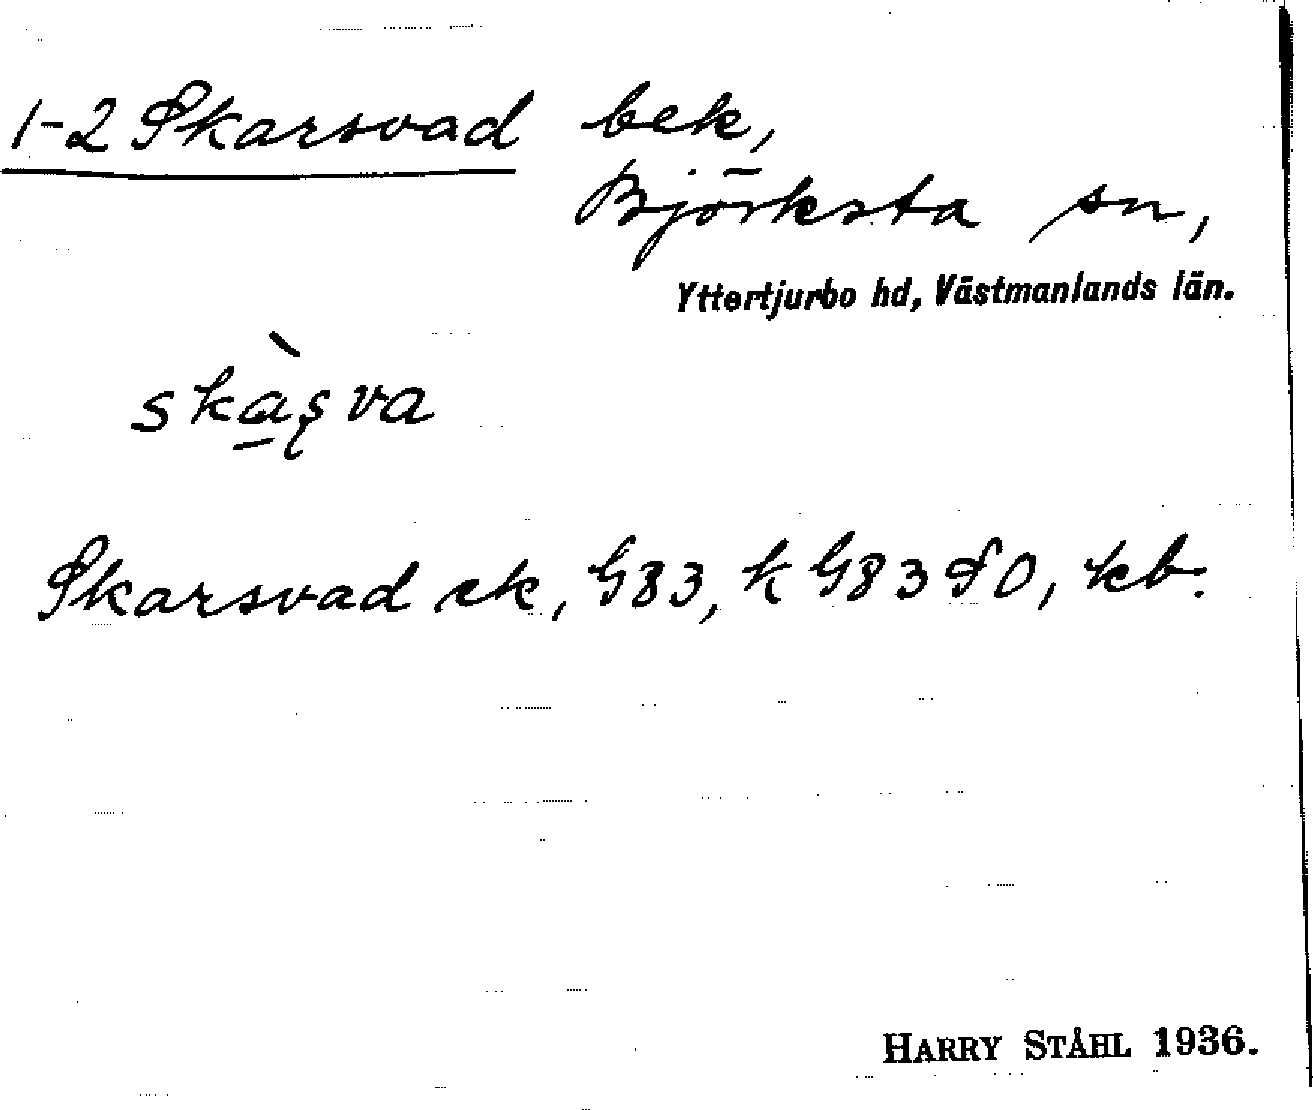 1-2 Skarsvad bek,
Björksta sn,
Yttertjurbo hd, Västmanlands län.
skàʂva
Skarsvad ek, G83, k G83 SO, kb.
HARRY STÅHL 1936.